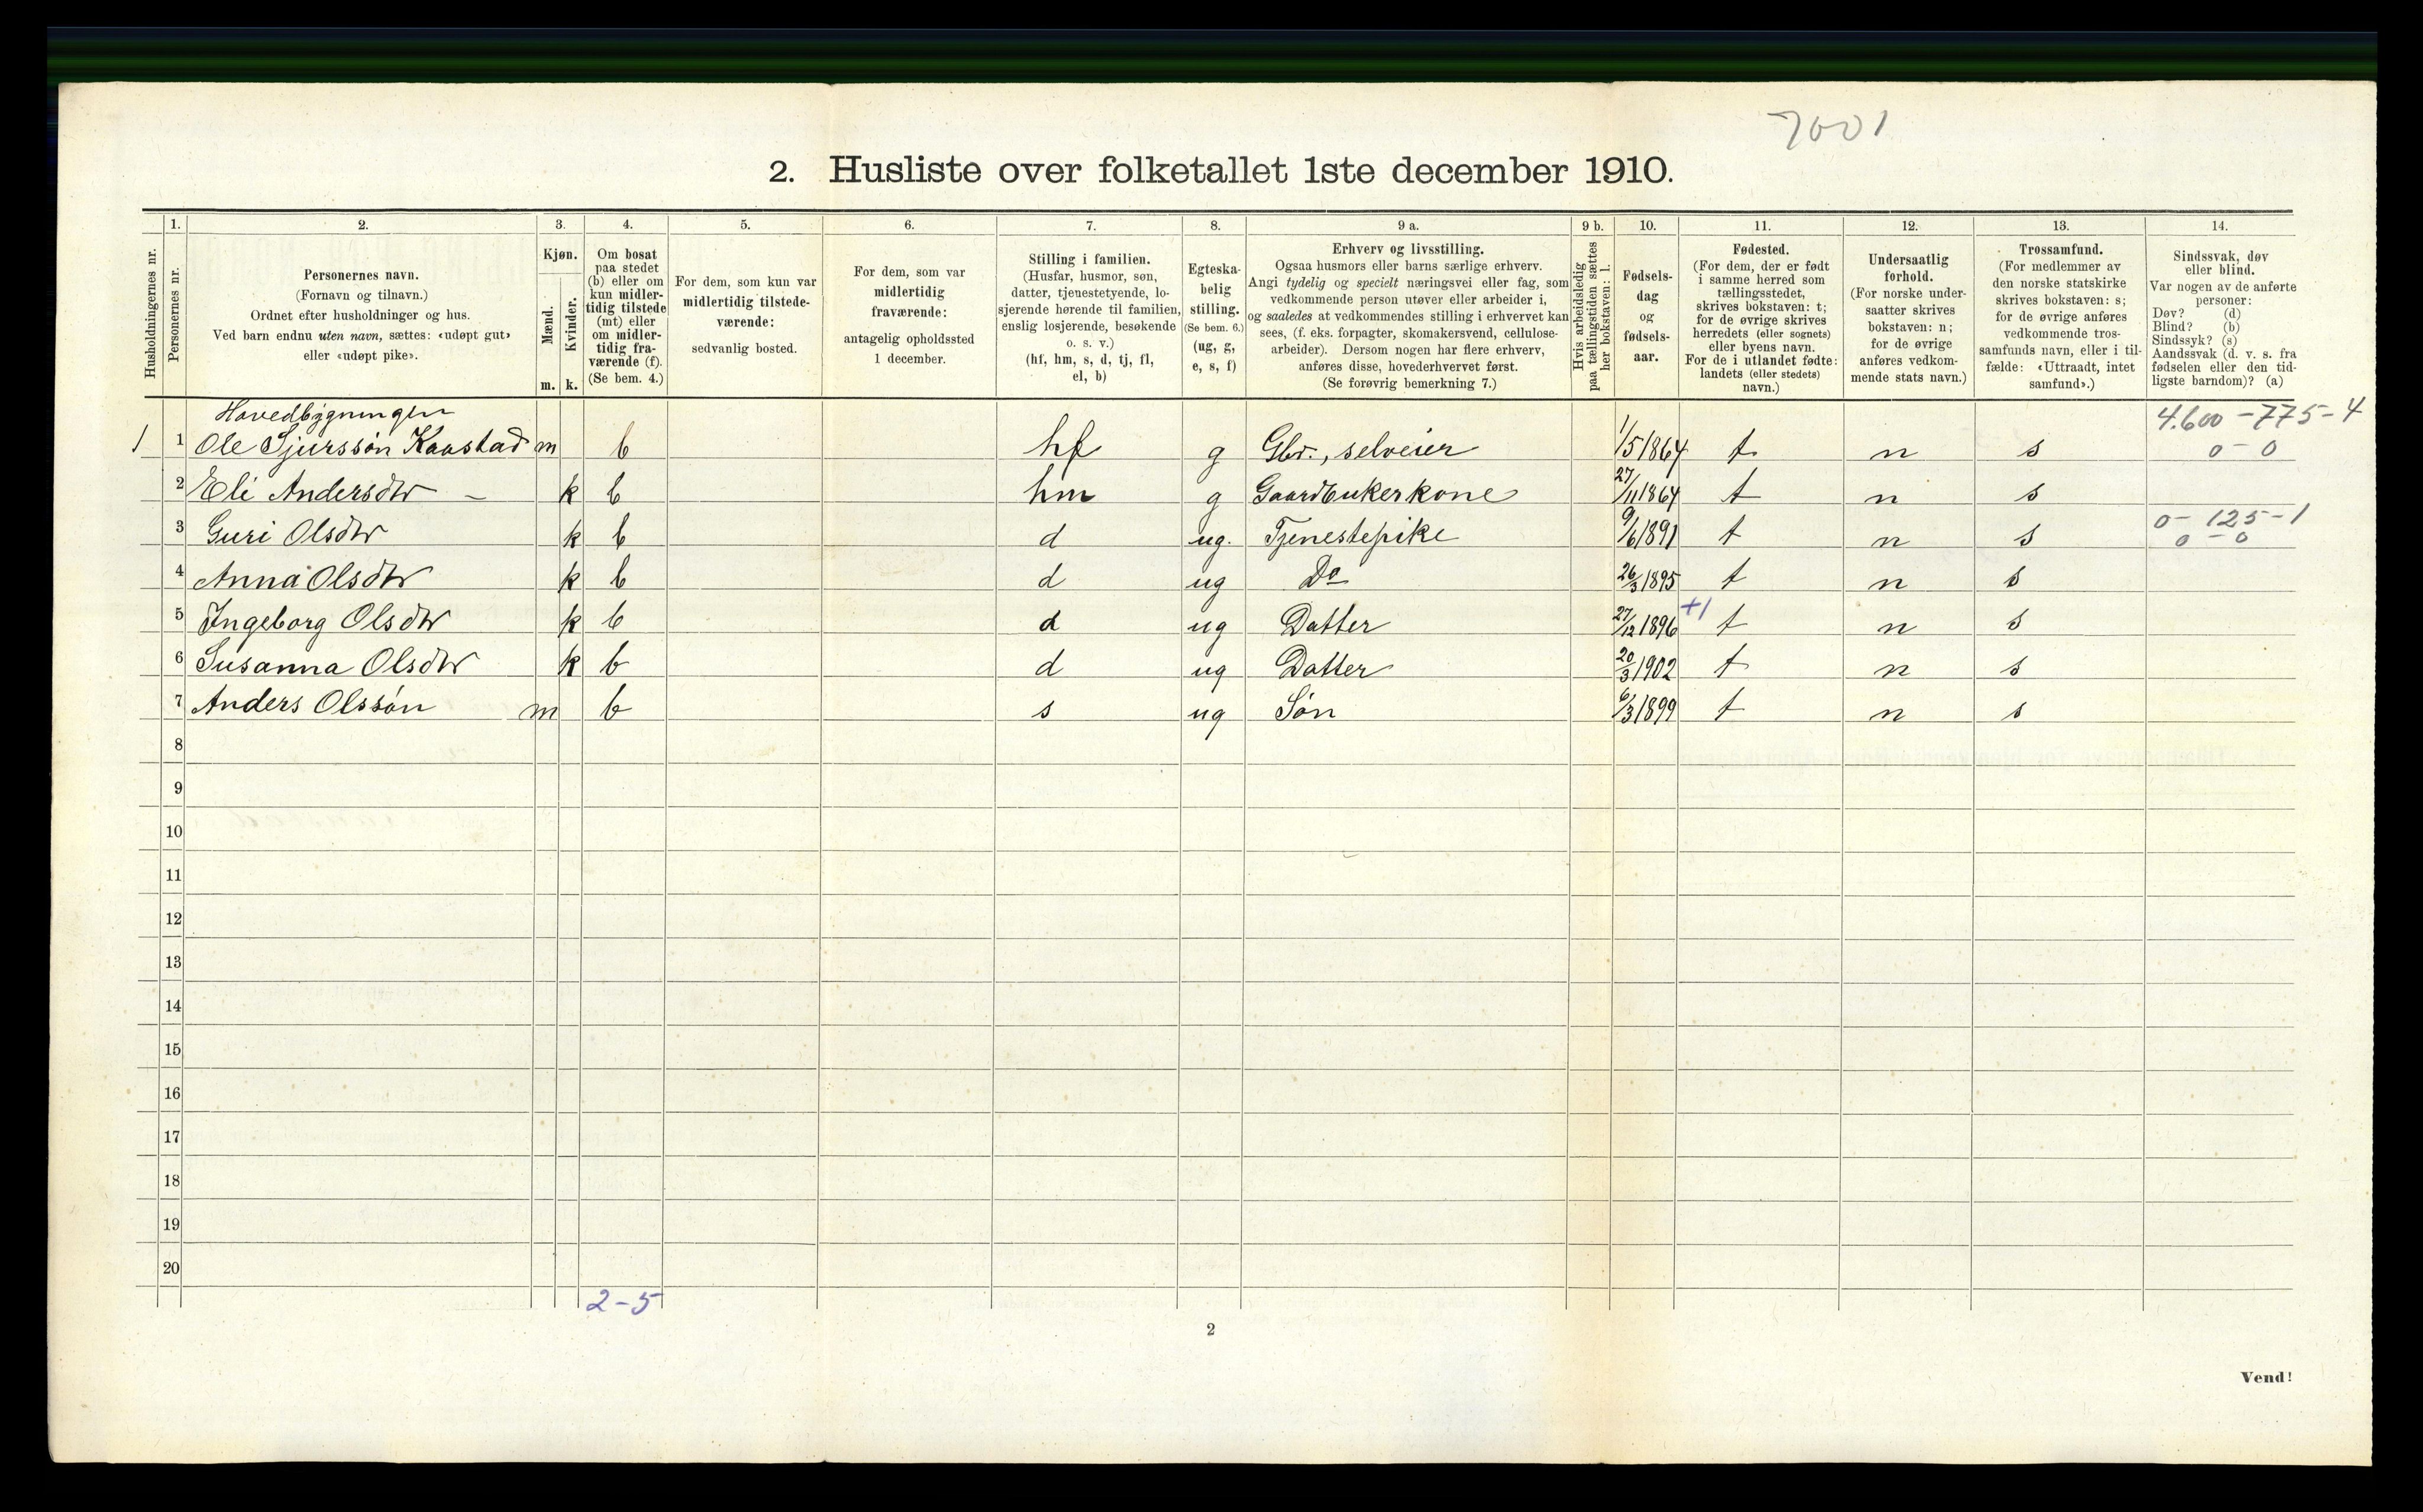 7001
2. Husliste over folketallet 1ste december 1910.
1. 2. 3. 4. 5. 6. 7. 8. 9 a. 9 b. 10. 11. 12. 13. 14.
Husholdningernes nr.
Personernes nr.
Personernes navn.
(Fornavn og tilnavn.)
Ordnet efter husholdninger og hus.
Ved barn endnu uten navn, sættes: «udøpt gut»
eller «udøpt pike».
Kjøn.
Mænd.
Kvinder.
m. k.
Om bosat
paa stedet
(b) eller om
kun midler-
tidig tilstede
(mt) eller
om midler-
tidig fra-
værende (f).
(Se bem. 4.)
For dem, som kun var
midlertidig tilstede-
værende:
sedvanlig bosted.
For dem, som var
midlertidig
fraværende:
antagelig opholdssted
1 december.
Stilling i familien.
(Husfar, husmor, søn,
datter, tjenestetyende, lo-
sjerende hørende til familien,
enslig losjerende, besøkende
o. s. v.)
(hf, hm, s, d, tj, fl,
el, b)
Egteska-
belig
stilling.
(Se bem. 6.)
(ug, g,
e, s, f)
Erhverv og livsstilling.
Ogsaa husmors eller barns særlige erhverv.
Angi tydelig og specielt næringsvei eller fag, som
vedkommende person utøver eller arbeider i,
og saaledes at vedkommendes stilling i erhvervet kan
sees, (f. eks. forpagter, skomakersvend, cellulose-
arbeider). Dersom nogen har flere erhverv,
anføres disse, hovederhvervet først.
(Se forøvrig bemerkning 7.)
Hvis arbeidsledig
paa tællingstiden sættes
her bokstaven: l.
Fødsels-
dag
og
fødsels-
aar.
Fødested.
(For dem, der er født
i samme herred som
tællingsstedet,
skrives bokstaven: t;
for de øvrige skrives
herredets (eller sognets)
eller byens navn.
For de i utlandet fødte:
landets (eller stedets)
navn.)
Undersaatlig
forhold.
(For norske under-
saatter skrives
bokstaven: n;
for de øvrige
anføres vedkom-
mende stats navn.)
Trossamfund.
(For medlemmer av
den norske statskirke
skrives bokstaven: s;
for de øvrige anføres
vedkommende tros-
samfunds navn, eller i til-
fælde: «Uttraadt, intet
samfund».)
Sindssvak, døv
eller blind.
Var nogen av de anførte
personer:
Døv? (d)
Blind? (b)
Sindssyk? (s)
Aandssvak (d. v. s. fra
fødselen eller den tid-
ligste barndom)? (a)
Hovedbygningen 4.600 - 775 - 4
1 1 Ole Sjurssøn Kaastad m b hf g Gbr., selveier 1/5 1864 t n s 0 - 0
2 Eli Andersdtr — k b hm g Gaardbrukerkone 27/11 1864 t n s
3 Guri Olsdtr k b d ug. Tjenestepike 9/6 1891 t n s 0 - 125 - 1
0 - 0
4 Anna Olsdtr k b d ug Do 26/3 1895 t n s
5 Ingeborg Olsdtr k b d ug Datter 27/12 1896 +1 t n s
6 Susanna Olsdtr k b d ug Datter 20/3 1902 t n s
7 Anders Olssøn m b s ug Søn 6/3 1899 t n s
8
9
10
11
12
13
14
15
16
17
18
19
20
2-5
2
Vend!